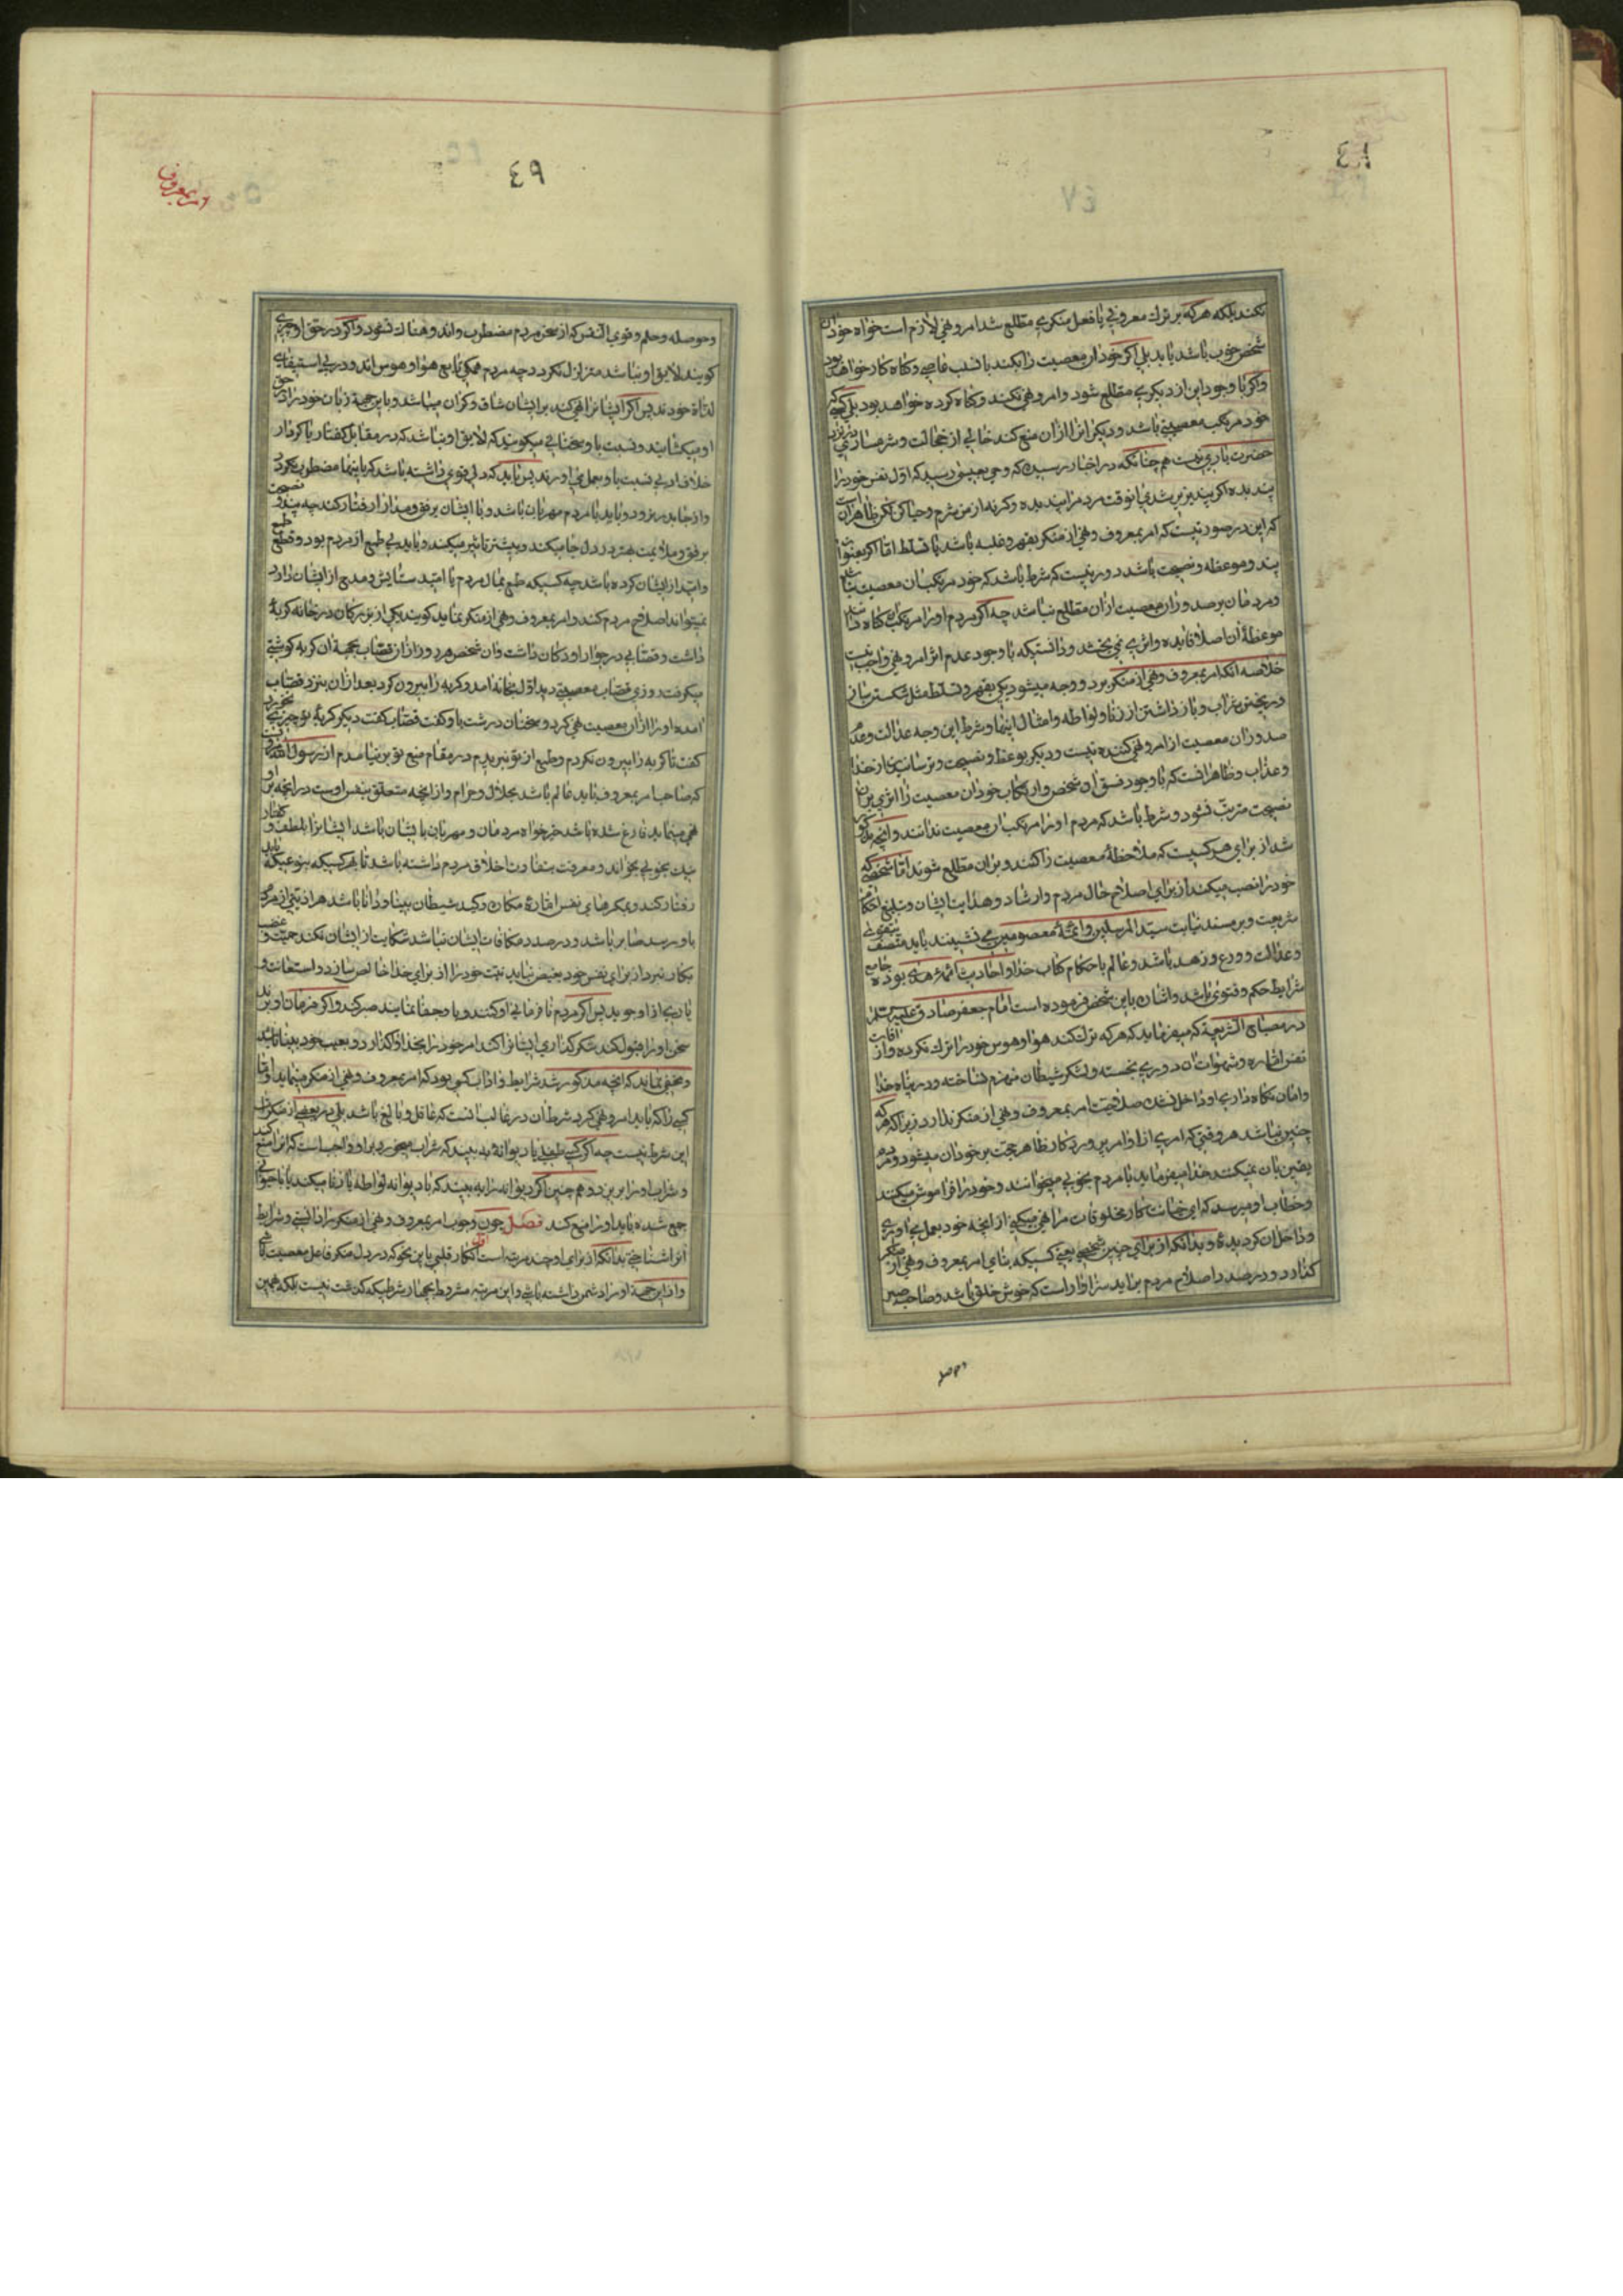 ٤٨
نکند بلکه هرکه بر ترك معروفی یا فعل منکری مطلع شد امر و نهی لازم است خواه خود آن
شخص خوب باشد یا بد بلی اگر خود آن معصیت را بکند با تسب عاصی و گناه کار خواهد بود
و اگر با وجود این از دیگری مطلع شود و امر و نهی نکند دو گناه کرده خواهد بود بلی کسی که
خود مرتکب معصیتی باشد و دیگران را از آن منع کند خالی از خجالت و شرمساری در نزد
حضرت باری نیست هم چنانکه در اخبار رسیده که وحی بعیسی رسید که اول نفس خود را
پند بده اگر پند پذیر شدی انوقت مردم را پند بده و گرنه از من شرم و حیا کن لکن ظاهر آن است
که این در صورتیست که امر بمعروف و نهی از منکر بقهر و غلبه باشد یا تسلط اما اگر بعنوان
پند و موعظه و نصیحت باشد دور نیست که شرط باشد که خود مرتکب آن معصیت نباشد
و مردمان بر صدور آن معصیت از آن مطلع نباشد چه اگر مردم او را مرتکب گناه دانند
موعظهٔ آن اصلا فایده و اثری نمی بخشد و دانستی که با وجود عدم اثر امر و نهی واجب نیست
خلاصه آنکه امر بمعروف و نهی از منکر بر دو وجه میشود یکی بقهر و تسلط مثل شکستن ساز
و ریختن شراب و باز داشتن از زنا و لواطه و امثال اینها و شرط این وجه عدالت و عدم
صدور آن معصیت از امر و نهی کننده نیست و دیگر بوعظ و نصیحت و ترسانیدن از خدا
و عذاب و ظاهر آنست که با وجود فسق آن شخص و ارتکاب خود آن معصیت را اثری بر آن
نصیحت مترتب نشود و شرط باشد که مردم او را مرتکب آن معصیت ندانند و آنچه مذکور
شد از برای هر کسیست که ملاحظهٔ معصیت را کنند و بر آن مطلع شوند اما شخصی که
خود را نصب میکند از برای اصلاح حال مردم و ارشاد و هدایت ایشان و تبلیغ احکام
شریعت و بر مسند نیابت سید المرسلین و ائمهٔ معصومین می نشیند باید متصف بتقوی
و عدالت و ورع و زهد باشد و عالم باحکام کتاب خدا و احادیث ائمهٔ هدی بوده جامع
شرایط حکم و فتوی باشد و اشاره باین شخص فرموده است امام جعفر صادق علیه السلام
در مصباح الشریعه که میفرماید که هرکه ترك نکند هوا و هوس خود را ترك نکرده و از آفات
نفس اماره و شهوات آن دوری نجسته و لشکر شیطان منهزم نساخته و در پناه خدا
و امان نگاه داری او داخل نشده صلاحیت امر بمعروف و نهی از منکر ندارد زیرا که هر که
چنین نباشد هر وقتی که امری از اوامر بروز کار ظاهر حجت بر خود آن میشود و مردم
یقین بآن نمیکنند خدا میفرماید یا مردم بخوبی میخوانند و خود را فراموش میکنند
و خطاب او میرسد که ای خیانت کار مخلوقات مرا نهی میکنی از آنچه خود بعمل می اوری
و داخل آن کردیده و بدانکه از برای چنین شخصی یعنی کسیکه بنای امر بمعروف و نهی از منکر
گذارد و در صدد اصلاح مردم براید سزاوار است که خوش خلق باشد و صاحب صبر
و حوصله
٤٩
امر بمعروف
و حوصله و حلم و قوی النفس که از سخن مردم مضطرب و اندوهناك نشود و اگر در حق او چیزی
گویند که لایق او نباشد متزلزل نگردد چه مردم همگی تابع هوا و هوس اند و در پی استیفای
لذات خودند پس اگر ایشان را نهی کند بر ایشان شاق و گران میباشد و باین جهة زبان خود را در حق
او میکشایند و نسبت باو سخنانی میگویند که لایق او نباشد که در مقابل گفتار یا کردار
خلاف ادبی نسبت باو بعمل می اورند پس باید که دلی قوی داشته باشد که باینها مضطرب نگردد
و از جا بدر نرود و باید با مردم مهربان باشد و با ایشان برفق و مدارا رفتار کند چه پند و نصیحت
برفق و ملایمت بهتر در دل جا میکند و بیشتر تاثیر میکند و باید بی طمع از مردم بود و قطع طمع
و امید از ایشان کرده باشد چه کسیکه طمع بمال مردم یا امید ستایش و مدح از ایشان دارد
نمیتواند اصلاح مردم کند و امر بمعروف و نهی از منکر نماید گویند یکی از بزرگان در خانه گربهٔ
داشت و قصابی در جوار او دکان داشت و آن شخص هر روز از آن قصاب بجهة آن گربه گوشتی
میگرفت روزی قصاب معصیتی دید اول بخانه امد و گربه را بیرون کرد بعد از آن بنزد قصاب
امده او را از آن معصیت نهی کرد و سخنان درشت باو گفت قصاب گفت دیگر گربهٔ تو چیزی نخواهد خورد
گفت تا گربه را بیرون نکردم و طمع از تو نبریدم در مقام منع تو بر نیامدم از رسول الله مرویست
که صاحب امر بمعروف باید عالم باشد بحلال و حرام و از آنچه متعلق بنفس اوست در آنچه بر او
نهی مینماید فارغ شده باشد خیر خواه مردمان و مهربان بایشان باشد ایشان را بلطف و گفتار
نیك بخوبی بخواند و معرفت بتفاوت اخلاق مردم داشته باشد تا بهر کسیکه بنوعی که باید
رفتار کند و بمکرهای نفس اماره مکان و کید شیطان بینا و دانا باشد هر اذیتی از مردم
باو برسد صابر باشد و در صدد مکافات ایشان نباشد شکایت از ایشان نکند حمیت و غضب
بکار نبرد از برای نفس خود بغیض نیاید نیت خود را از برای خدا خالص سازد و استعانت و
یاری از او جوید پس اگر مردم نا فرمانی او کنند و یا جفا نمایند صبر کند و اگر فرمان او برند
سخن او را قبول کند شکر گذاری ایشان را کند امر خود را بخدا گذارد و بعیب خود بینا باشد
و مخفی نماند که آنچه مذکور شد شرایط و اداب کسی بود که امر بمعروف و نهی از منکر مینماید و اما
کسی را که باید امر و نهی کرد شرط آن در غالب آنست که عاقل و بالغ باشد بلی در بعضی از منکرات
این شرط نیست چه اگر کسی طفلی یا دیوانهٔ بد بیند که شراب میخورد بر او واجب است که او را منع کند
و شراب او را بریزد و هم چنین اگر دیوانه را به بیند که با دیوانه لواطه یا زنا میکند یا با حیوانی
جمع شده باید او را منع کند فصل چون وجوب امر بمعروف و نهی از منکر را دانستی و شرایط
آنرا شناختی بدانکه از برای او چند مرتبه است اول انکار قلبی باین نحو که در دل منکر فاعل معصیت باشی
و از این جهة او را دشمن داشته باشی و این مرتبه مشروط بچهار شرطیکه گذشت نیست بلکه همین